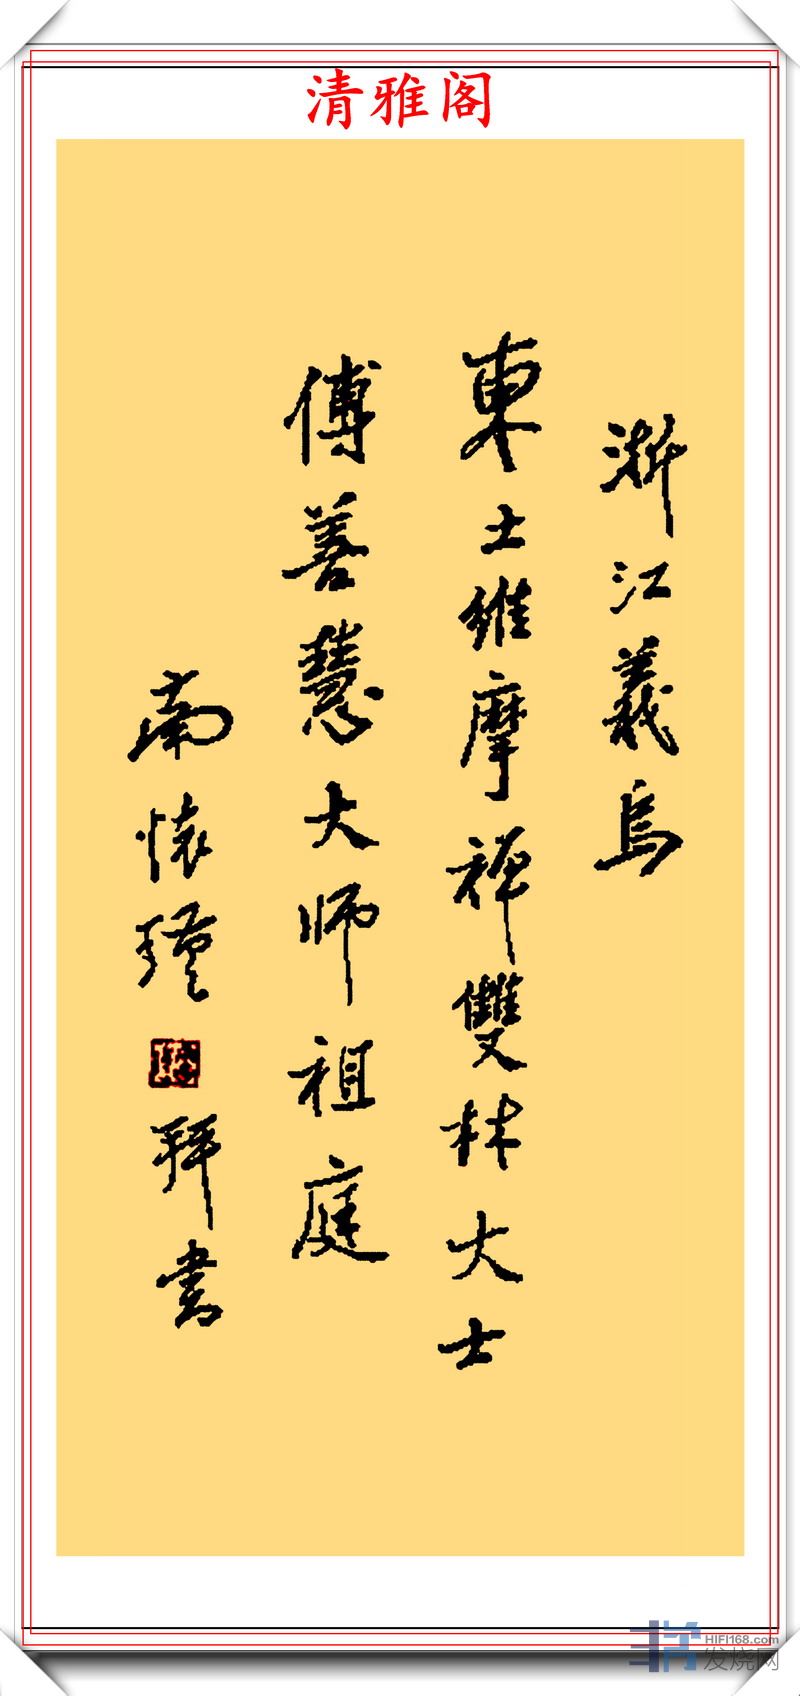 清雅阁
浙江義烏
東土維摩禅雙林大士
傅善慧大师祖庭
南懷瑾
拜書
HIFI168.com
发烧网